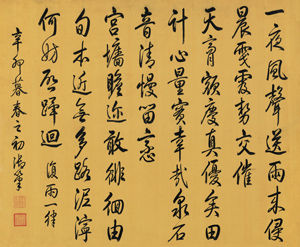 一夜風聲送雨來侵
晨霎霎勢交催
天膏額慶真優矣田
計心量實幸哉泉石
音清慢留戀
宮牆瞻邇敢徘徊由
旬本近無多路泥濘
何妨啟蹕迴 復雨一律
辛卯暮春之初御筆